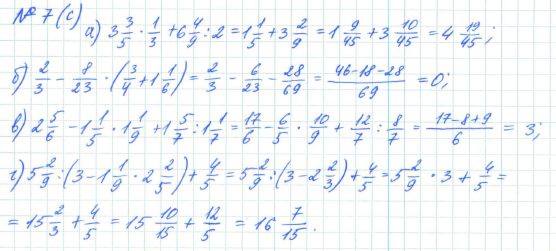 № 7 (с)
а) 3 3/5 · 1/3 + 6 4/9 : 2 = 1 1/5 + 3 2/9 = 1 9/45 + 3 10/45 = 4 19/45;
б) 2/3 - 8/23 · (3/4 + 1 1/6) = 2/3 - 6/23 - 28/69 = (46-18-28)/69 = 0;
в) 2 5/6 - 1 1/5 · 1 1/9 + 1 5/7 : 1 1/7 = 17/6 - 6/5 · 10/9 + 12/7 : 8/7 = (17-8+9)/6 = 3;
г) 5 2/9 : (3 - 1 1/9 · 2 2/5) + 4/5 = 5 2/9 : (3 - 2 2/3) + 4/5 = 5 2/9 · 3 + 4/5 =
= 15 2/3 + 4/5 = 15 10/15 + 12/5 = 16 7/15.